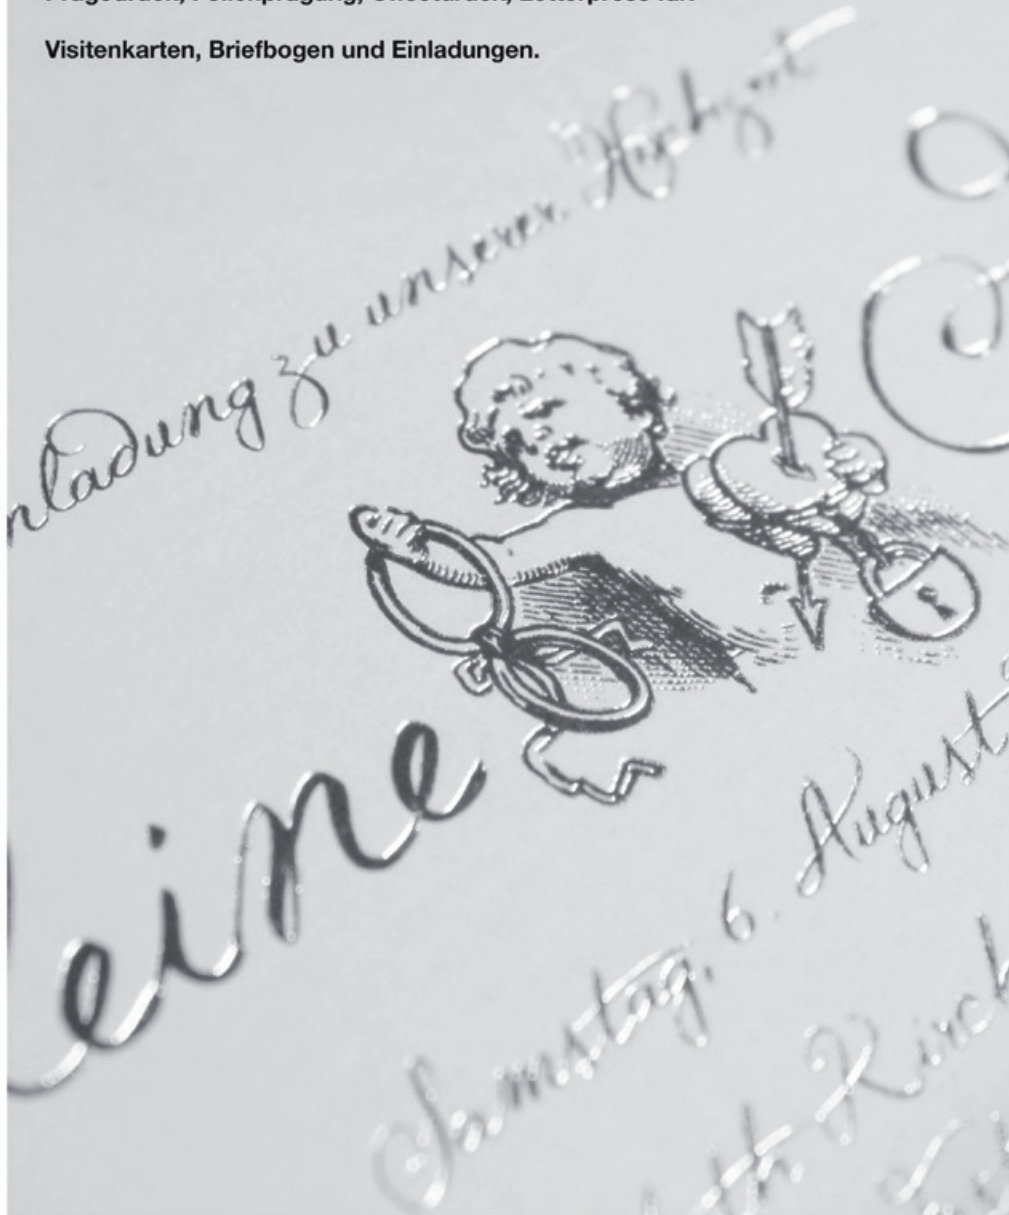 Visitenkarten, Briefbogen und Einladungen.
nladung zu unserer Hochzeit
eine
Samstag, 6. August
Kirch